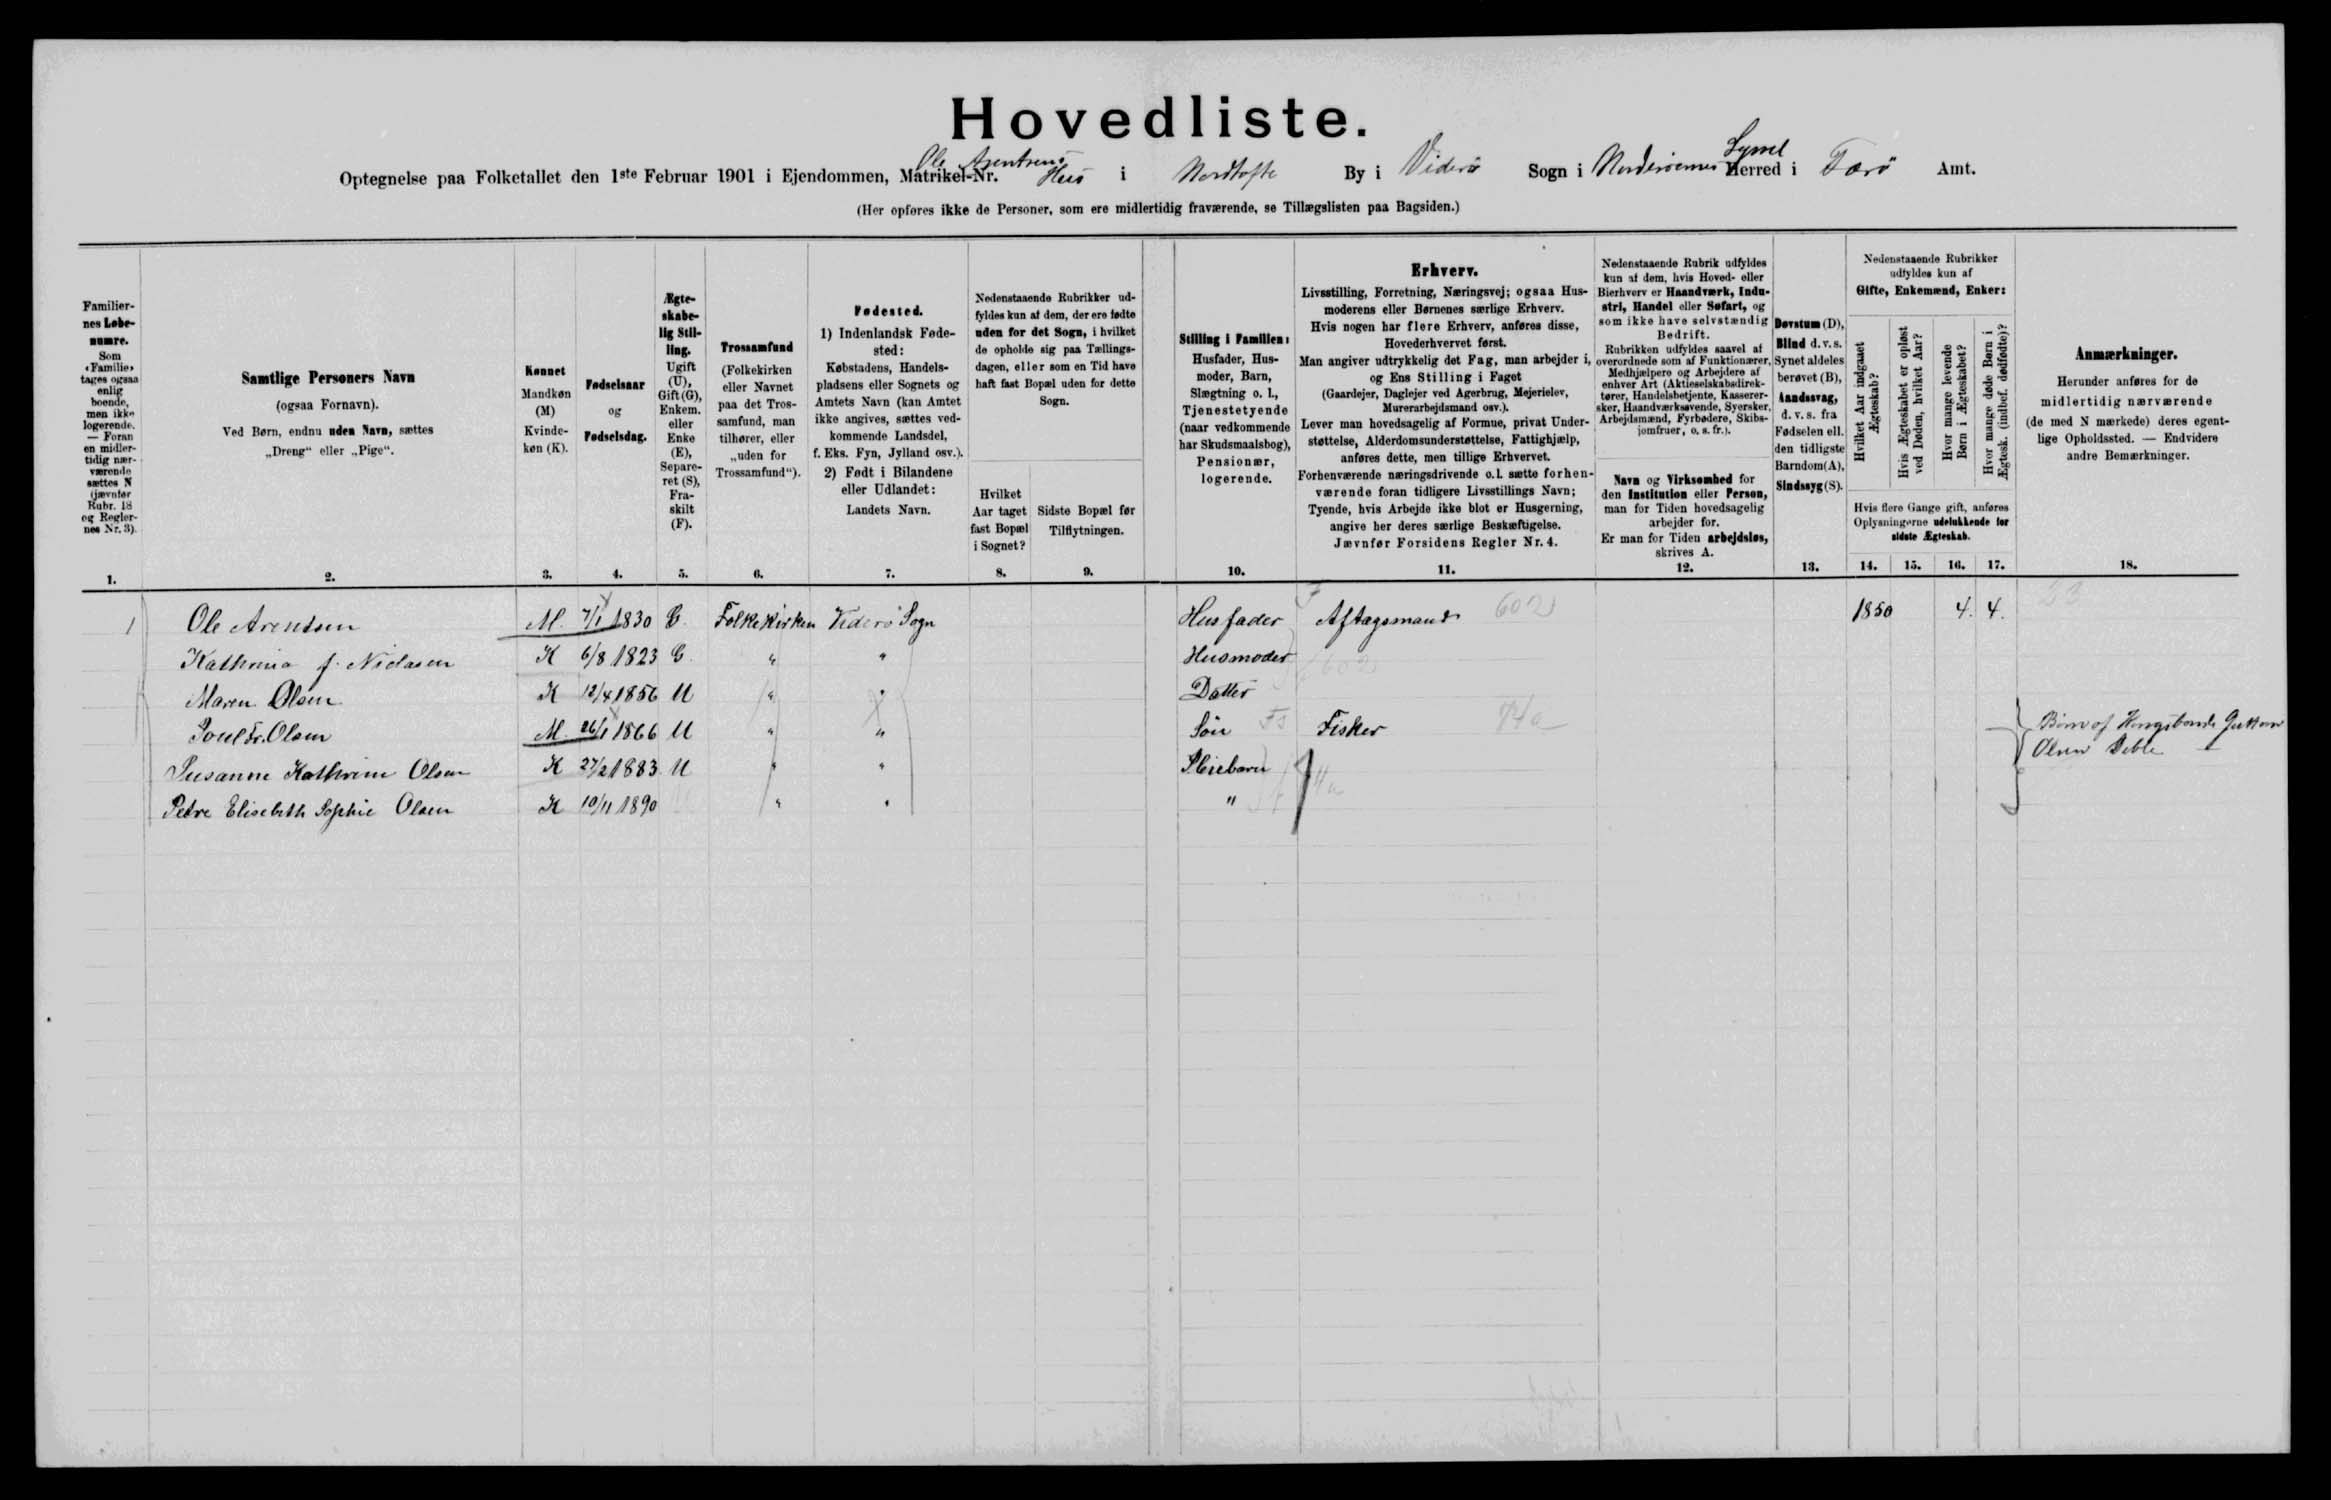 Hovedliste.
Optegnelse paa Folketallet den 1ste Februar 1901 i Ejendommen, Matrikel-Nr. Ole Arentsens Hus i Nordtofte By i Viderø Sogn i Norderøernes Syssel Herred i Færø Amt.
(Her opføres ikke de Personer, som ere midlertidig fraværende, se Tillægslisten paa Bagsiden.)
Familier-
nes Løbe-
numre.
Som
«Familie»
tages ogsaa
enlig
boende,
men ikke
logerende.
— Foran
en midler-
tidig nær-
værende
sættes N
(jævnfør
Rubr. 18
og Regler-
nes Nr. 3).
1.
Samtlige Personers Navn
(ogsaa Fornavn).
Ved Børn, endnu uden Navn, sættes
„Dreng“ eller „Pige“.
2.
Kønnet
Mandkøn
(M)
Kvinde-
køn (K).
3.
Fødselsaar
og
Fødselsdag.
4.
Ægte-
skabe-
lig Stil-
ling.
Ugift
(U),
Gift (G),
Enkem.
eller
Enke
(E),
Separe-
ret (S),
Fra-
skilt
(F).
5.
Trossamfund
(Folkekirken
eller Navnet
paa det Tros-
samfund, man
tilhører, eller
„uden for
Trossamfund“).
6.
Fødested.
1) Indenlandsk Føde-
sted:
Købstadens, Handels-
pladsens eller Sognets og
Amtets Navn (kan Amtet
ikke angives, sættes ved-
kommende Landsdel,
f. Eks. Fyn, Jylland osv.).
2) Født i Bilandene
eller Udlandet:
Landets Navn.
7.
Nedenstaaende Rubrikker ud-
fyldes kun af dem, der ere fødte
uden for det Sogn, i hvilket
de opholde sig paa Tællings-
dagen, eller som en Tid have
haft fast Bopæl uden for dette
Sogn.
Hvilket
Aar taget
fast Bopæl
i Sognet?
8.
Sidste Bopæl før
Tilflytningen.
9.
Stilling i Familien:
Husfader, Hus-
moder, Barn,
Slægtning o. l.,
Tjenestetyende
(naar vedkommende
har Skudsmaalsbog),
Pensionær,
logerende.
10.
Erhverv.
Livsstilling, Forretning, Næringsvej; ogsaa Hus-
moderens eller Børnenes særlige Erhverv.
Hvis nogen har flere Erhverv, anføres disse,
Hovederhvervet først.
Man angiver udtrykkelig det Fag, man arbejder i,
og Ens Stilling i Faget
(Gaardejer, Daglejer ved Agerbrug, Mejerielev,
Murerarbejdsmand osv.).
Lever man hovedsagelig af Formue, privat Under-
støttelse, Alderdomsunderstøttelse, Fattighjælp,
anføres dette, men tillige Erhvervet.
Forhenværende næringsdrivende o.l. sætte forhen-
værende foran tidligere Livsstillings Navn;
Tyende, hvis Arbejde ikke blot er Husgerning,
angive her deres særlige Beskæftigelse.
Jævnfør Forsidens Regler Nr. 4.
11.
Nedenstaaende Rubrik udfyldes
kun af dem, hvis Hoved- eller
Bierhverv er Haandværk, Indu-
stri, Handel eller Søfart, og
som ikke have selvstændig
Bedrift.
Rubrikken udfyldes saavel af
overordnede som af Funktionærer,
Medhjælpere og Arbejdere af
enhver Art (Aktieselskabsdirek-
tører, Handelsbetjente, Kasserer-
sker, Haandværkssvende, Syersker,
Arbejdsmænd, Fyrbødere, Skibs-
jomfruer, o. s. fr.).
Navn og Virksomhed for
den Institution eller Person,
man for Tiden hovedsagelig
arbejder for.
Er man for Tiden arbejdsløs,
skrives A.
12.
Døvstum (D),
Blind d. v. s.
Synet aldeles
berøvet (B),
Aandssvag,
d. v. s. fra
Fødselen ell.
den tidligste
Barndom (A),
Sindssyg (S).
13.
Nedenstaaende Rubrikker
udfyldes kun af
Gifte, Enkemænd, Enker:
Hvilket Aar indgaaet
Ægteskab?
Hvis Ægteskabet er opløst
ved Døden, hvilket Aar?
Hvor mange levende
Børn i Ægteskabet?
Hvor mange døde Børn i
Ægtesk. (indbef. dødfødte)?
Hvis flere Gange gift, anføres
Oplysningerne udelukkende for
sidste Ægteskab.
14. 15. 16. 17.
Anmærkninger.
Herunder anføres for de
midlertidig nærværende
(de med N mærkede) deres egent-
lige Opholdssted. — Endvidere
andre Bemærkninger.
18.
1 Ole Arentsen M. 7/1 1830 G. Folkekirken Viderø Sogn Husfader Aftagsmand 602 1850 4. 4. 23
Kathrina f. Niclasen K 6/8 1823 G. " " Husmoder 602
Maren Olsen K 12/4 1856 U " " Datter
Poul Fr. Olsen M. 26/1 1866 U " " Søn Fs Fisker 74a
Susanne Kathrine Olsen K 27/2 1883 U " " Pleiebarn
Petre Elisebeth Sophie Olsen K 10/11 1890 " " "
Børn af Kongsbonde Guttorm
Olsen